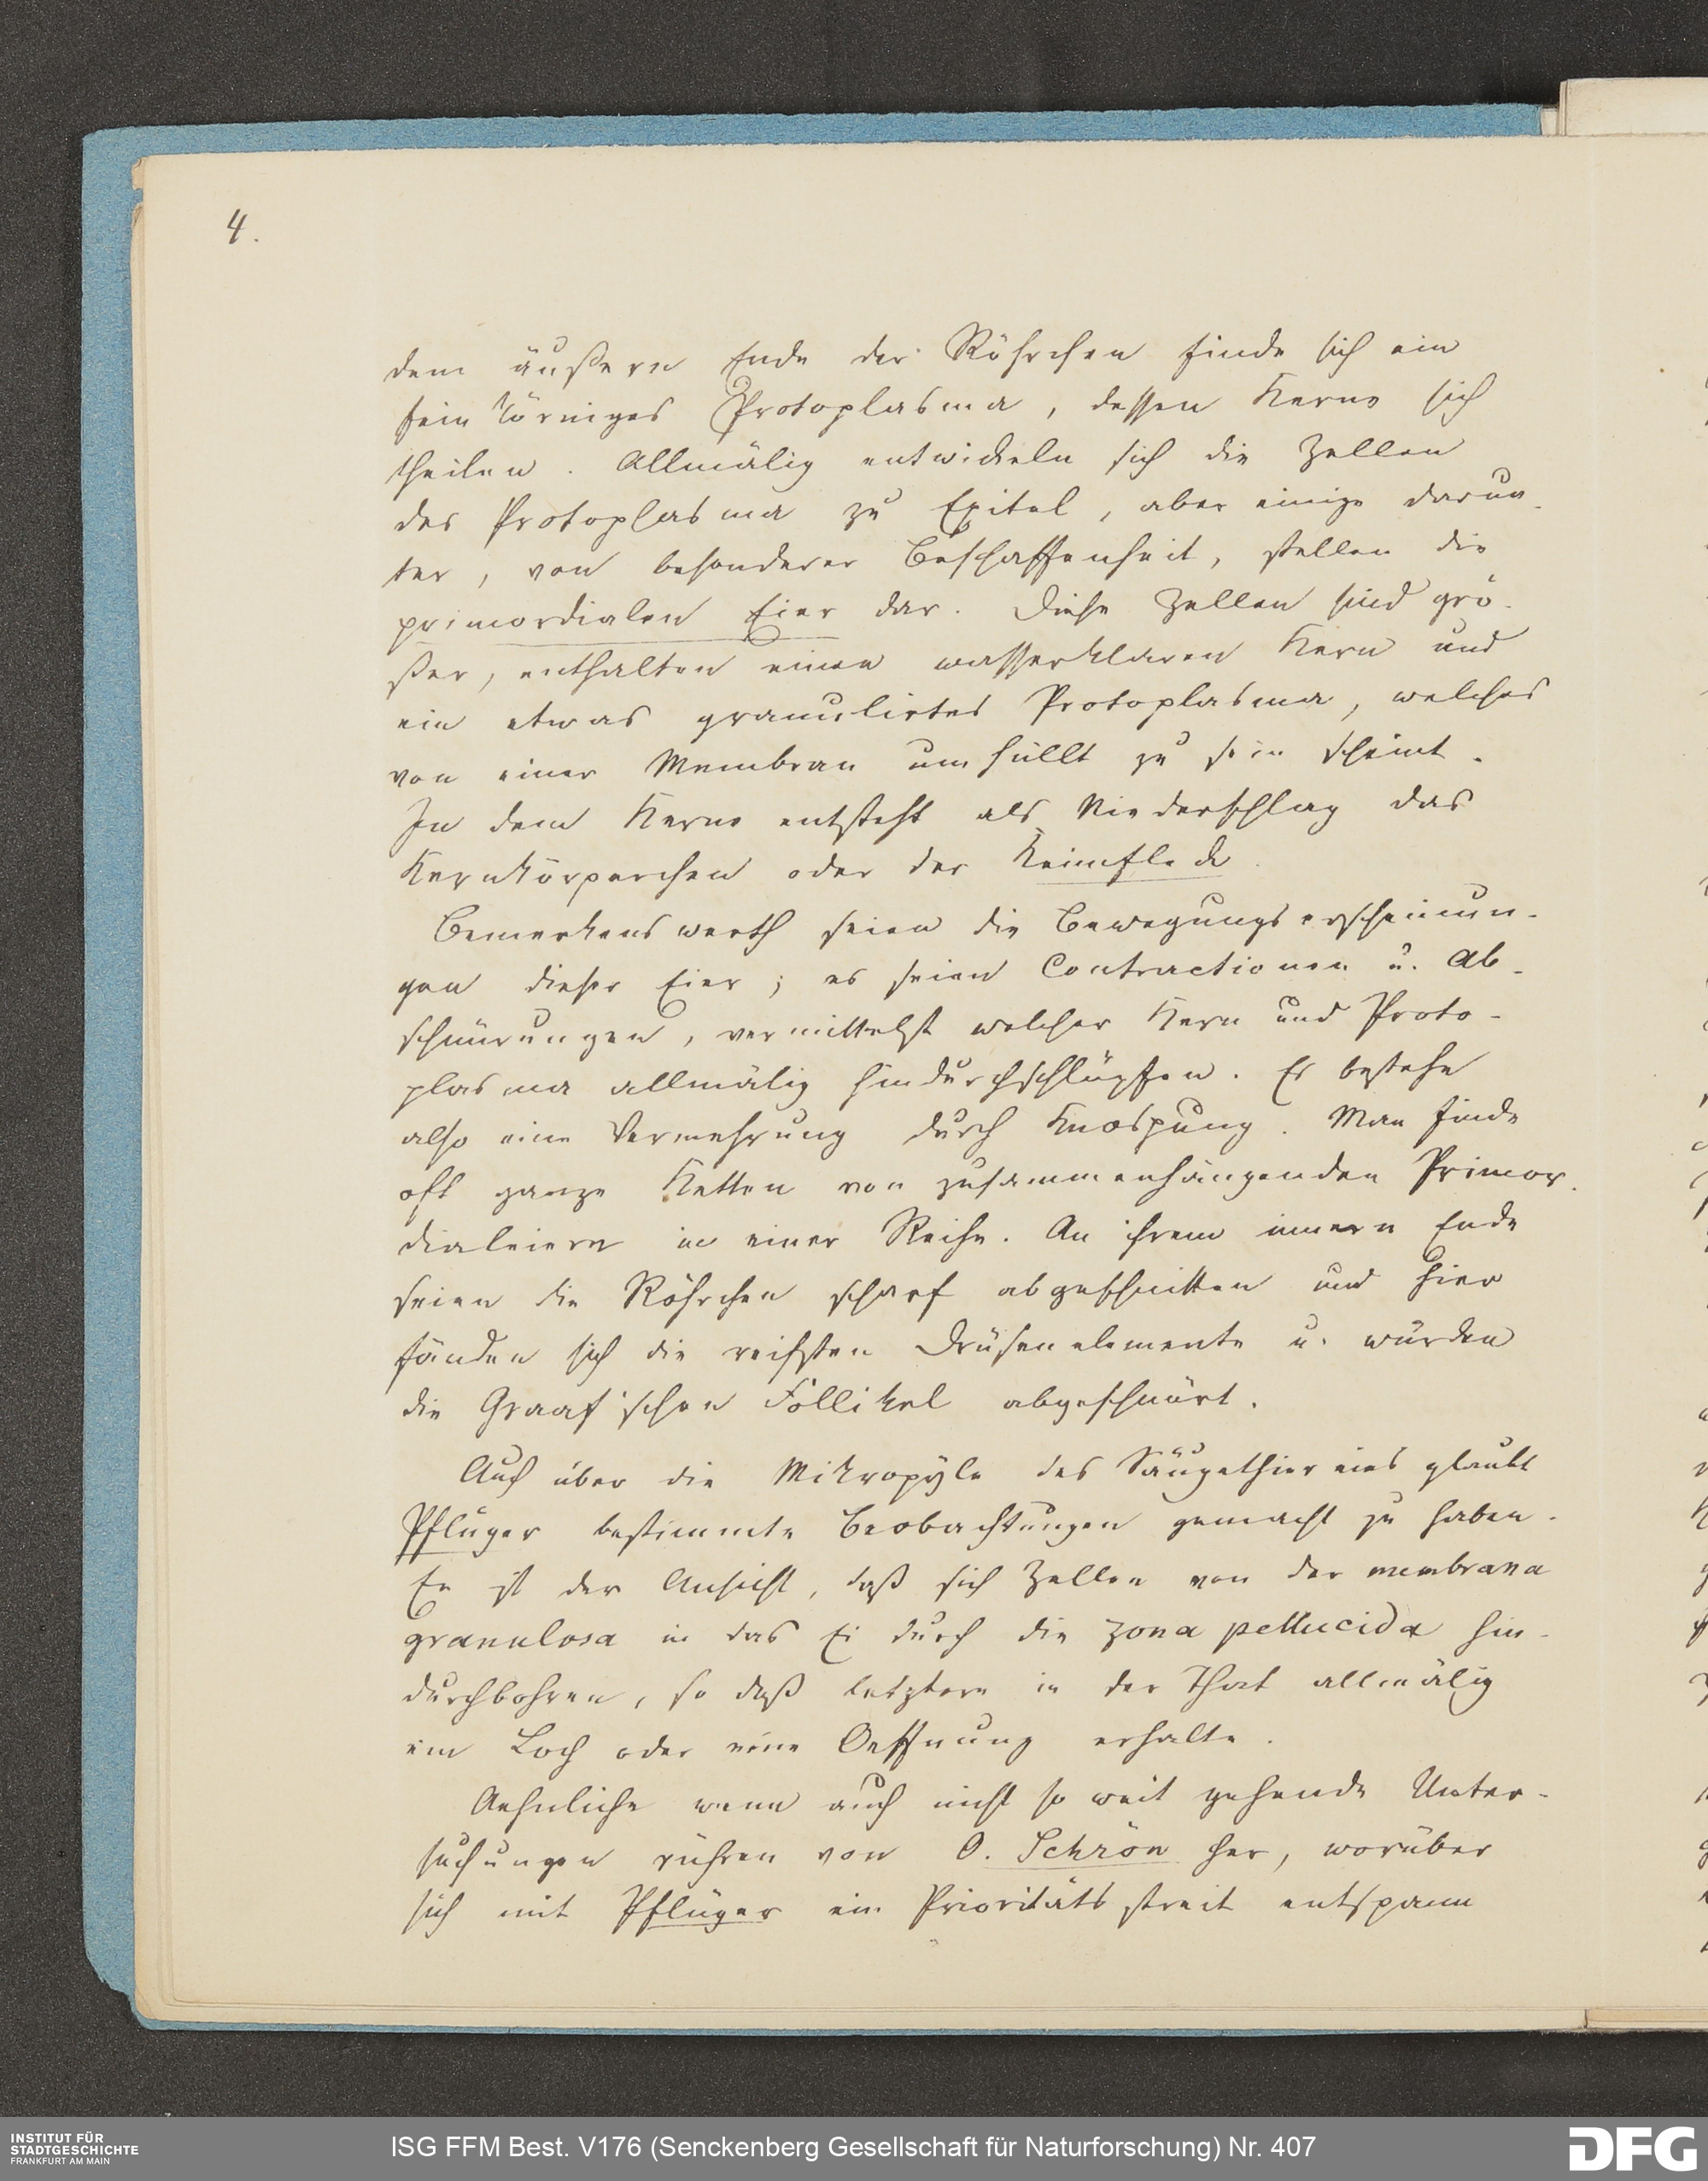 4.
dem äußern Ende der Röhrchen finde sich ein
fein körniges Protoplasma, dessen Kerne sich
theilen. Allmälig entwickeln sich die Zellen
des Protoplasma zu Epitel, aber einige darun-
ter, von besonderer Beschaffenheit, stellen die
primordialen Eier dar. Diese Zellen sind grö-
ßer, enthalten einen wasserklaren Kern und
ein etwas granulirtes Protoplasma, welches
von einer Membran umhüllt zu sein scheint.
In dem Kerne entsteht als Niederschlag das
Kernkörperchen oder der Keimfleck.
Bemerkenswerth seien die Bewegungserscheinun-
gen dieser Eier; es seien Contractionen u. Ab-
schnürungen, vermittelst welcher Kern und Proto-
plasma allmälig hindurchschlüpfen. Es bestehe
also eine Vermehrung durch Knospung. Man finde
oft ganze Ketten von zusammenhängenden Primor-
dialeiern in einer Reihe. An ihrem innern Ende
seien die Röhrchen scharf abgeschnitten und hier
fänden sich die reifsten Drüsenelemente u. würden
die Graaf'schen Follikel abgeschnürt.
Auch über die Mikropyle des Säugethiereies glaubt
Pflüger bestimmte Beobachtungen gemacht zu haben.
Er ist der Ansicht, daß sich Zellen von der membrana
granulosa in das Ei durch die zona pellucida hin-
durchbohren, so daß letztere in der That allmälig
ein Loch oder eine Oeffnung erhalte.
Aehnliche wenn auch nicht so weit gehende Unter-
suchungen rühren von O. Schrön her, worüber
sich mit Pflüger ein Prioritätsstreit entspann
INSTITUT FÜR
STADTGESCHICHTE
FRANKFURT AM MAIN
ISG FFM Best. V176 (Senckenberg Gesellschaft für Naturforschung) Nr. 407
DFG